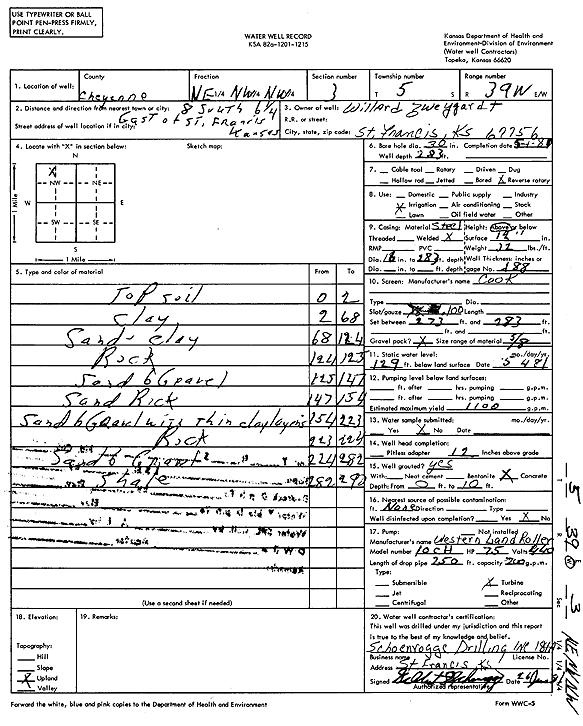 USE TYPEWRITER OR BALL
POINT PEN-PRESS FIRMLY,
PRINT CLEARLY.
WATER WELL RECORD
KSA 82a-1201-1215
Kansas Department of Health and
Environment-Division of Environment
(Water well Contractors)
Topeka, Kansas 66620
1. Location of well:
County
Cheyenne
Fraction
NE 1/4 NW 1/4 NW 1/4
Section number
3
Township number
T 5 S
Range number
R 39W E/W
2. Distance and direction from nearest town or city: 8 South 6 1/4
East of St. Francis
Street address of well location if in city: Kansas
3. Owner of well: Willard Zweygardt
R.R. or street:
City, state, zip code: St. Francis, Ks 67756
4. Locate with "X" in section below:
Sketch map:
N
X
NW NE
W E
SW SE
S
1 Mile
1 Mile
5. Type and color of material From To
Top soil 0 2
Clay 2 68
Sand-clay 68 124
Rock 124 125
Sand & Gravel 125 147
Sand Rock 147 154
Sand & Gravel with thin clay layers 154 223
Rock 223 224
Sand & Gravel 224 282
Shale 282 290
(Use a second sheet if needed)
6. Bore hole dia. 30 in. Completion date
Well depth 283 ft.
7. Cable tool Rotary Driven Dug
Hollow rod Jetted Bored X Reverse rotary
8. Use: Domestic Public supply Industry
X Irrigation Air conditioning Stock
Lawn Oil field water Other
9. Casing: Material Steel Height: Above or below
Threaded Welded X Surface 12" in.
RMP PVC Weight 32 lbs./ft.
Dia. 16 in. to 283 ft. depth Wall Thickness: inches or
Dia. in. to ft. depth gage No. .188
10. Screen: Manufacturer's name Cook
Type Dia.
Slot/gauze .100 Length
Set between 273 ft. and 283 ft.
ft. and ft.
Gravel pack? X Size range of material 5/8
11. Static water level: mo./day/yr.
129 ft. below land surface Date 5 4 81
12. Pumping level below land surfaces:
ft. after hrs. pumping g.p.m.
ft. after hrs. pumping g.p.m.
Estimated maximum yield 1100 g.p.m.
13. Water sample submitted: mo./day/yr.
Yes X No Date
14. Well head completion:
Pitless adapter 12 Inches above grade
15. Well grouted? yes
With: Neat cement Bentonite X Concrete
Depth: From 0 ft. to 10 ft.
16. Nearest source of possible contamination:
ft. None Direction Type
Well disinfected upon completion? Yes X No
17. Pump: Not installed
Manufacturer's name Western Land Roller
Model number 10CH HP 75 Volts 440
Length of drop pipe 250 ft. capacity g.p.m.
Type:
Submersible X Turbine
Jet Reciprocating
Centrifugal Other
18. Elevation:
Topography:
Hill
Slope
X Upland
Valley
19. Remarks:
20. Water well contractor's certification:
This well was drilled under my jurisdiction and this report
is true to the best of my knowledge and belief.
Schoenrogge Drilling Inc
Business name License No.
Address St Francis Ks
Signed Date
Authorized representative
T 5 R 39 W Sec 3 NE NW NW
1/4 1/4 1/4
Forward the white, blue and pink copies to the Department of Health and Environment
Form WWC-5